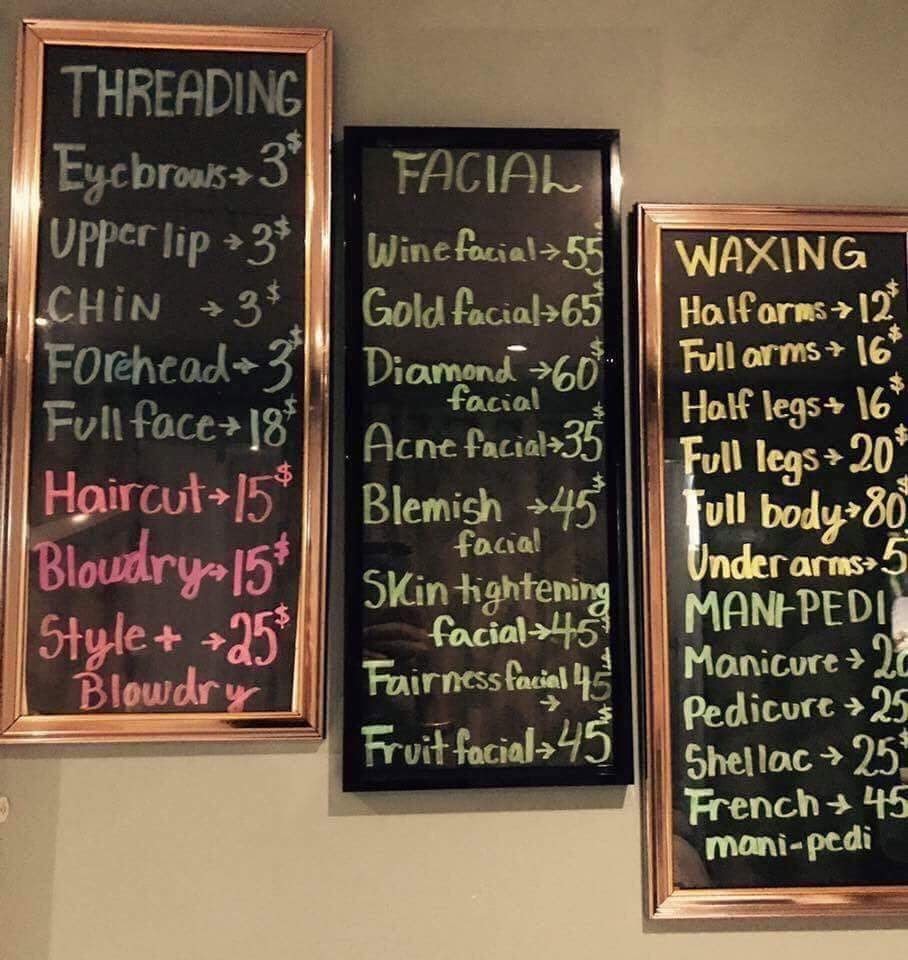 THREADING
Eyebrows→3$
Upper lip →3$
CHiN →3$
FOrehead→3$
Full face→18$
Haircut→15$
Bloudry→15$
Style+ →25$
Blowdry
FACIAL
Wine facial→55
Gold facial→65$
Diamond →60$
facial
Acne facial→35$
Blemish →45$
facial
SKin tightening
facial→45$
Fairness facial 45$
→
Fruit facial→45$
WAXING
Half arms→12$
Full arms→16$
Half legs→16$
Full legs→20$
Full body→80$
Under arms→5
MANI-PEDI
Manicure→20
Pedicure→25
Shellac→25$
French→45
mani-pedi